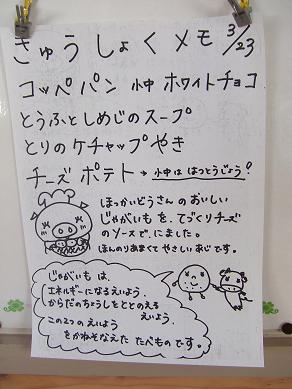 きゅうしょくメモ 3/23
コッペパン 小中 ホワイトチョコ
とうふとしめじのスープ
とりのケチャップやき
チーズ ポテト → 小中は はつとうじょう!
ほっかいどうさんの おいしい
じゃがいもを、てづくりチーズ
のソースで、にました。
ほんのりあまくて やさしい あじです。
じゃがいも は、
エネルギーになるえいよう、
からだのちょうしをととのえる
えいよう、
この2つの えいよう
をかねそなえた たべものです。